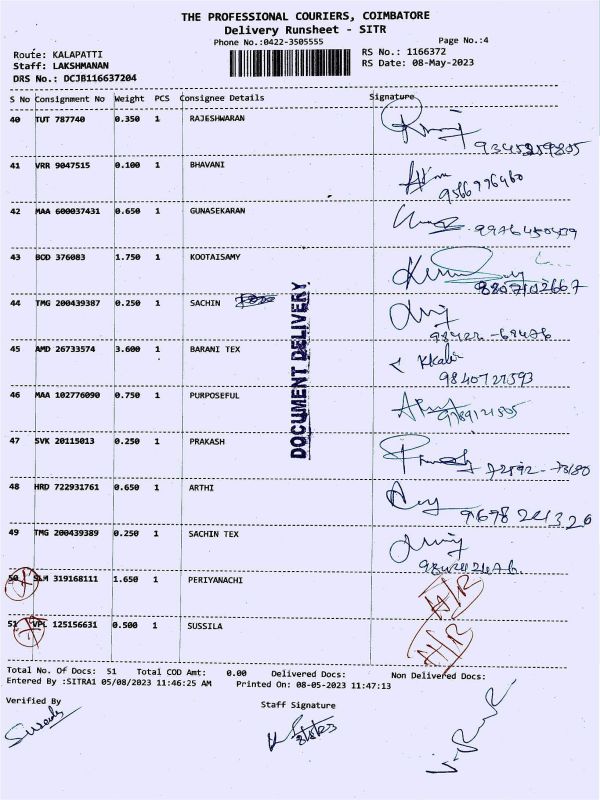 THE PROFESSIONAL COURIERS, COIMBATORE
Delivery Runsheet - SITR
Phone No.:0422-3505555
Page No.:4
Route: KALAPATTI
RS No.: 1166372
Staff: LAKSHMANAN
RS Date: 08-May-2023
DRS No.: DCJB116637204
S No Consignment No Weight PCS Consignee Details Signature
40 TUT 787740 0.350 1 RAJESHWARAN
9345259805
41 VRR 9047515 0.100 1 BHAVANI
9566776460
42 MAA 600037431 0.650 1 GUNASEKARAN
43 BOD 376083 1.750 1 KOOTAISAMY
8807102667
44 TMG 200439387 0.250 1 SACHIN
45 AMD 26733574 3.600 1 BARANI TEX
9840727593
46 MAA 102776090 0.750 1 PURPOSEFUL
9789121505
47 SVK 20115013 0.250 1 PRAKASH
72592-73180
48 HRD 722931761 0.650 1 ARTHI
49 TMG 200439389 0.250 1 SACHIN TEX
50 SLM 319168111 1.650 1 PERIYANACHI
A/R
51 VPL 125156631 0.500 1 SUSSILA
A/R
DOCUMENT DELIVERY
Total No. Of Docs: 51 Total COD Amt: 0.00 Delivered Docs: Non Delivered Docs:
Entered By :SITRA1 05/08/2023 11:46:25 AM Printed On: 08-05-2023 11:47:13
Verified By
Staff Signature